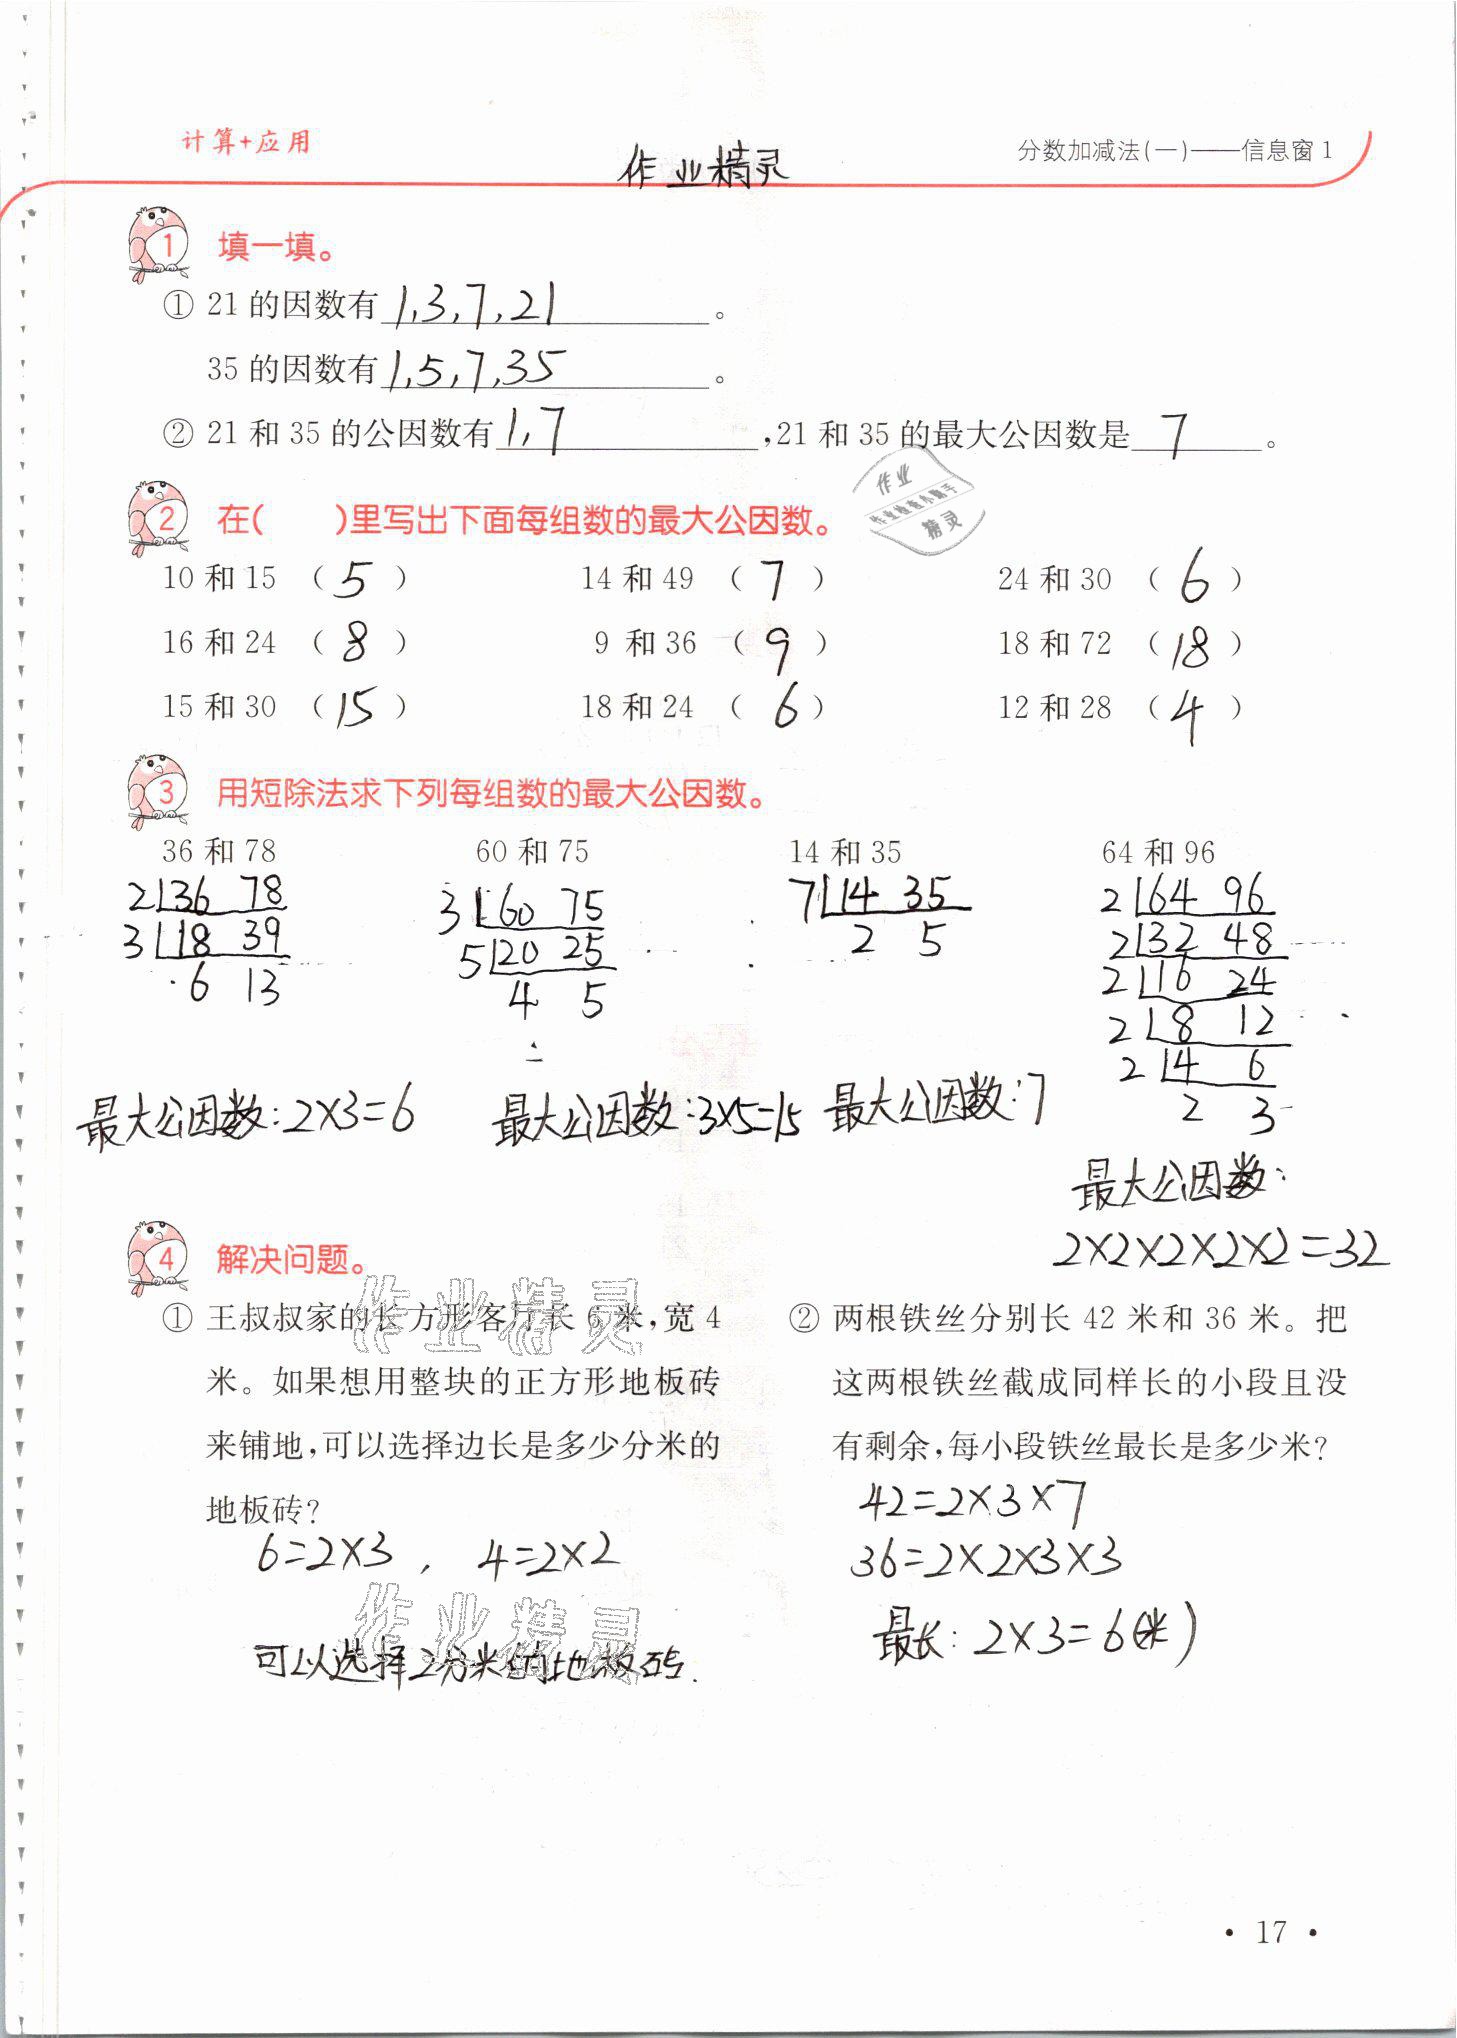 计算+应用
作业精灵
分数加减法(一)——信息窗1
1 填一填。
① 21的因数有1,3,7,21。
35的因数有1,5,7,35。
② 21和35的公因数有1,7,21和35的最大公因数是7。
作业
作业检查小助手
精灵
2 在( )里写出下面每组数的最大公因数。
10和15 (5) 14和49 (7) 24和30 (6)
16和24 (8) 9和36 (9) 18和72 (18)
15和30 (15) 18和24 (6) 12和28 (4)
3 用短除法求下列每组数的最大公因数。
36和78 60和75 14和35 64和96
2 36 78
3 18 39
6 13
3 60 75
5 20 25
4 5
7 14 35
2 5
2 64 96
2 32 48
2 16 24
2 8 12
2 4 6
2 3
最大公因数:2×3=6
最大公因数:3×5=15
最大公因数:7
最大公因数:
2×2×2×2×2=32
4 解决问题。
① 王叔叔家的长方形客厅长6米,宽4
米。如果想用整块的正方形地板砖
来铺地,可以选择边长是多少分米的
地板砖?
6=2×3, 4=2×2
可以选择2分米的地板砖.
作业精灵
作业精灵
② 两根铁丝分别长42米和36米。把
这两根铁丝截成同样长的小段且没
有剩余,每小段铁丝最长是多少米?
42=2×3×7
36=2×2×3×3
最长:2×3=6(米)
• 17 •